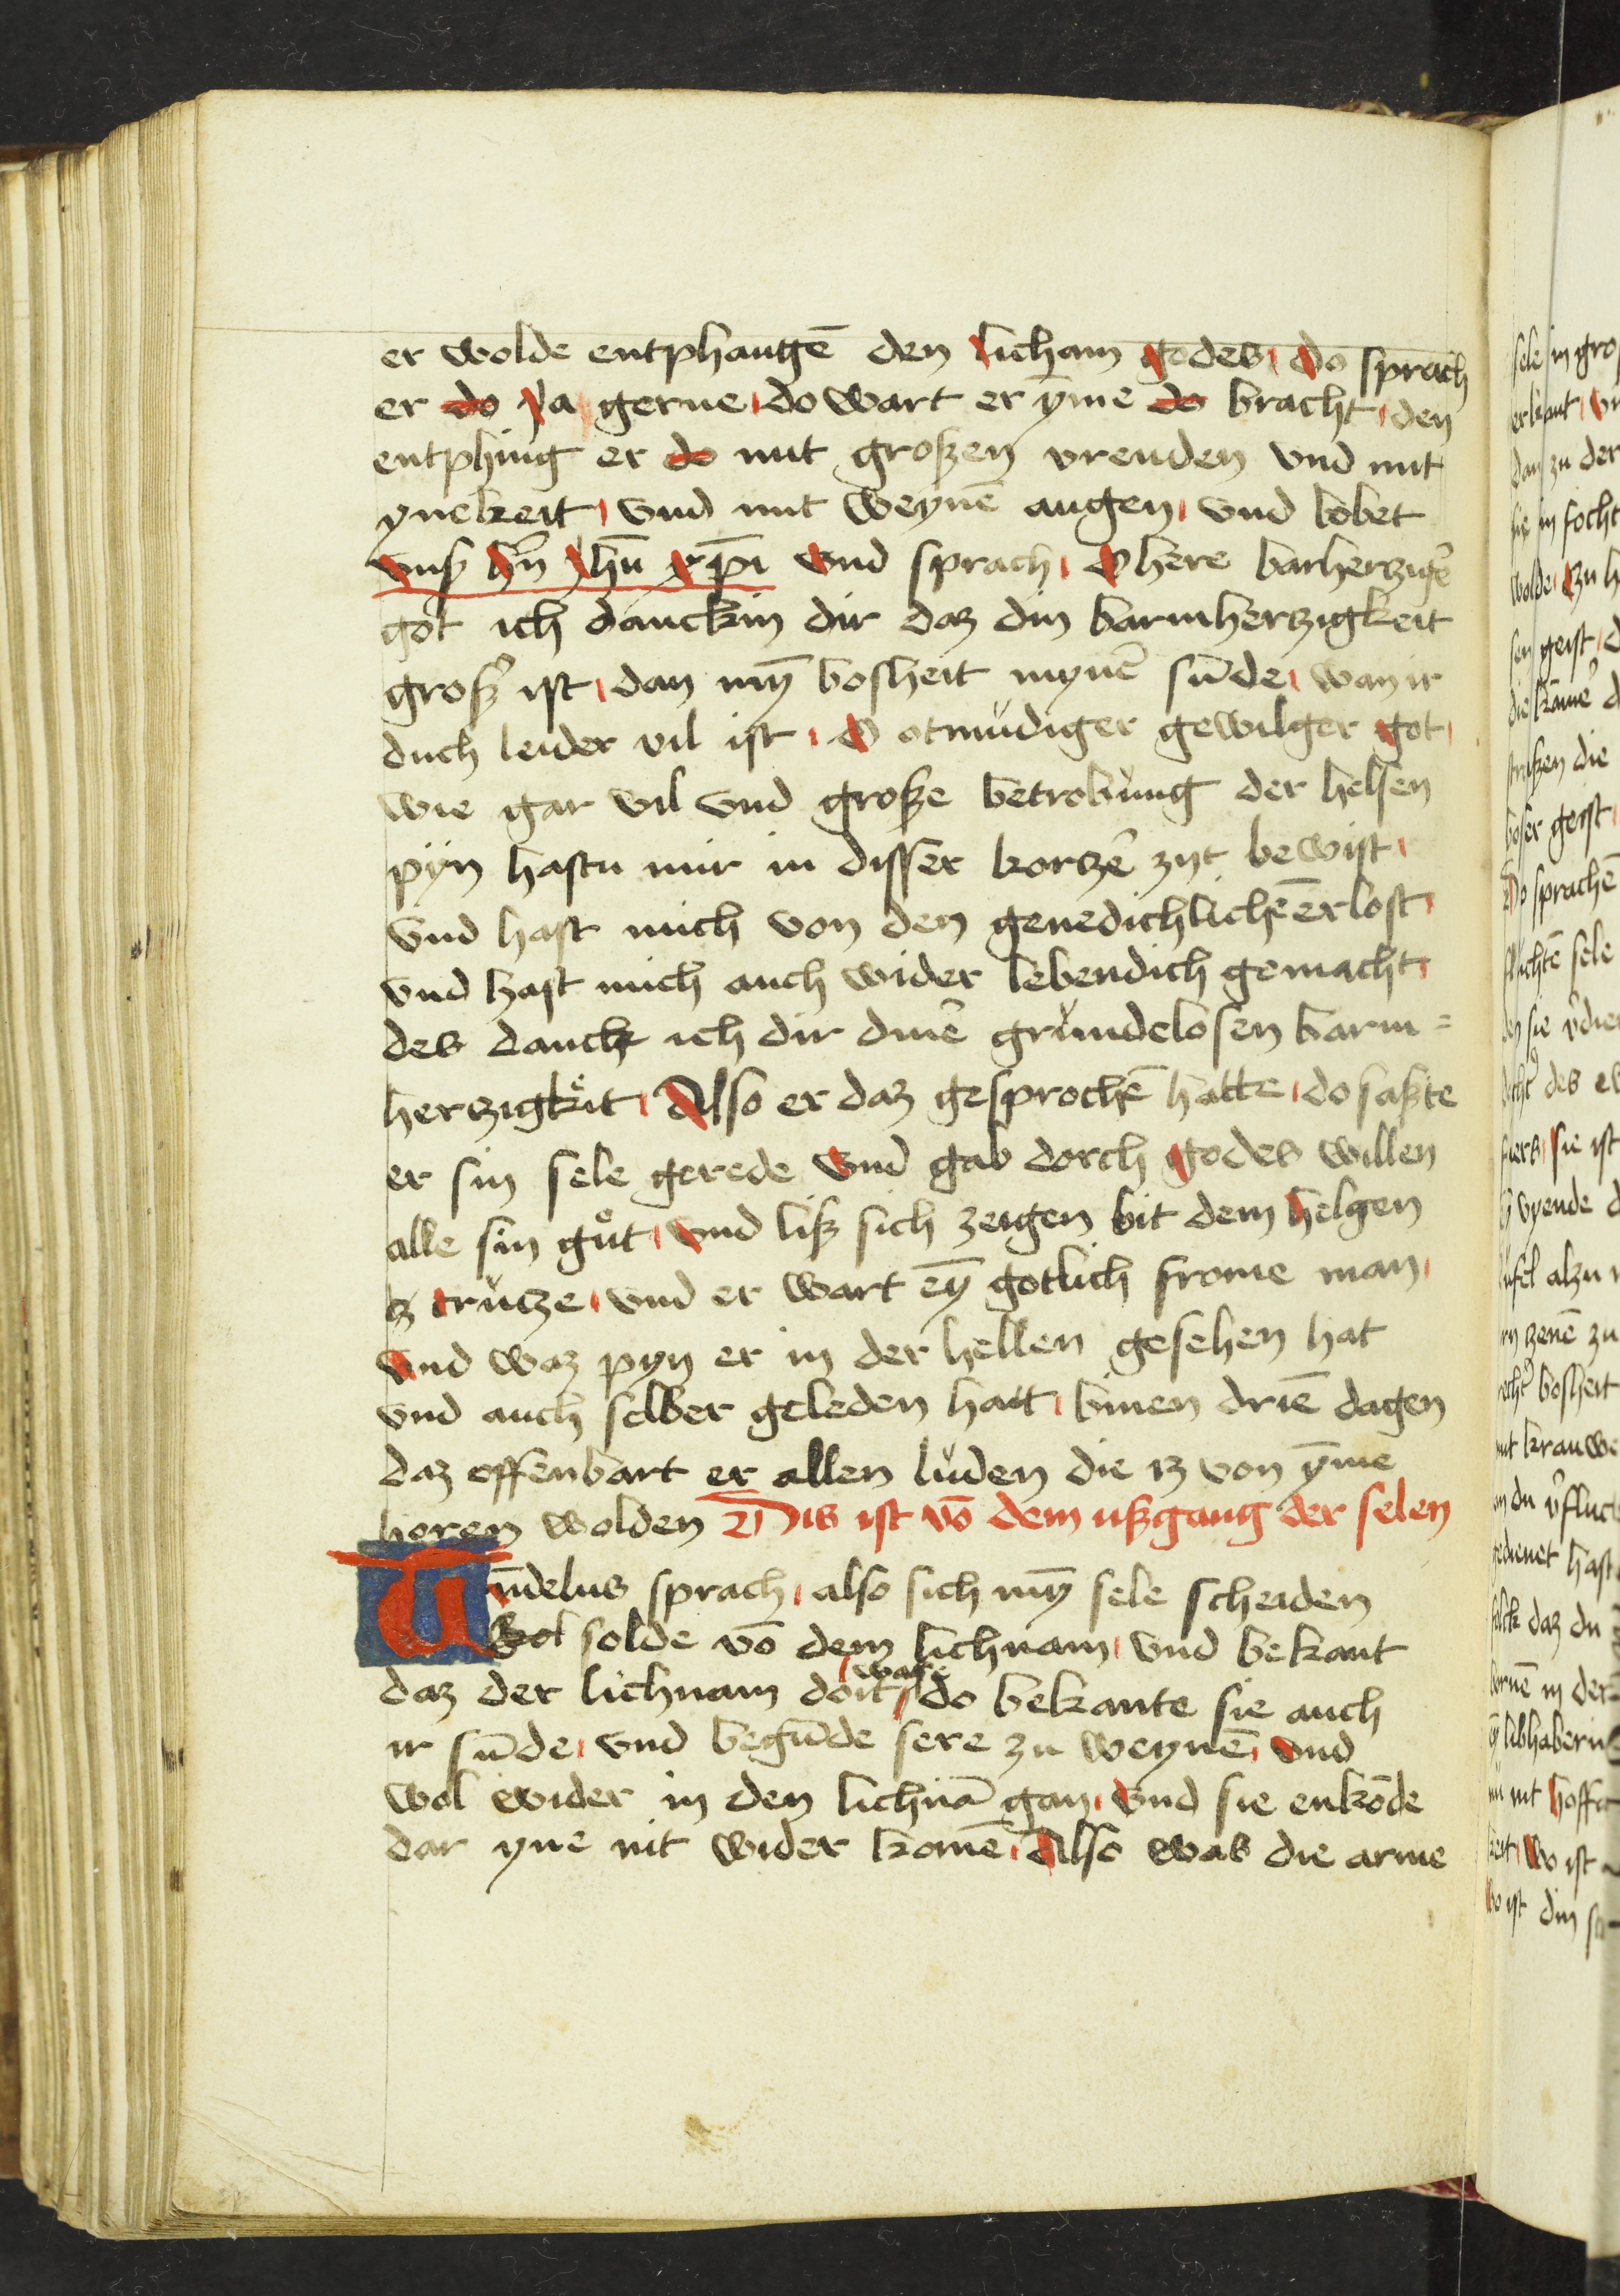 er wolde entphangē den licham godes do sprach
er do ya gerne do wart er ȳme do bracht den
entphing er do mit großen vreuden vnd mit
ynekeit vnd mit weynē augen vnd lobet
vnß hn̄ yhū xp̄i vnd sprach O here barherzigē
got ich danckin dir daz din barmherzigkeit
großˀ ist dan mȳ bosheit mynē sūde wan ir
duch leider vil ist O otmudiger gewilger got
wie gar vil vnd große betrobung der helsen
pijn hastu mir in disser kortzē zyt bewist
vnd hast mich von den genedichlichē erlost
vnd hast mich auch wider lebendich gemacht
des danck ich dir dinē grundelosen barm=
herzigkeit Also er daz gesprochē hatte do saßte
er sin sele gerede vnd gab dorch godes willen
alle sin gůt vnd liß sich zeigen bit dem helgen
tz crutze vnd er wart eȳ gotlich frome man
vnd waz pyn er in der hellen gesehen hat
vnd auch selber geleden hatt binen driē dagen
daz offenbart er allen luden die iz von ȳme
horen wolden Dis ist vō dem ußgang der selen
Tūdelus sprach also sich mȳ sele scheiden
solde vō dem lichnam vnd bekant
daz der lichnam doit wz do bekante sie auch
ir sūde vnd begūde sere zu weynē vnd
wol wider in den lichnā gan vnd sie enkōde
dar yne nit wider komē Also was die arme
sele in gro
erkant
dan zu der
in focht
wolde
geist
die
straßen die
boser geist
Do sprachē
sele
sie
des
sie ist
vyende
alzu

bosheit
krauwe
du
gedienet hast
daz du
in der

nit hofft
wo ist
wo ist din